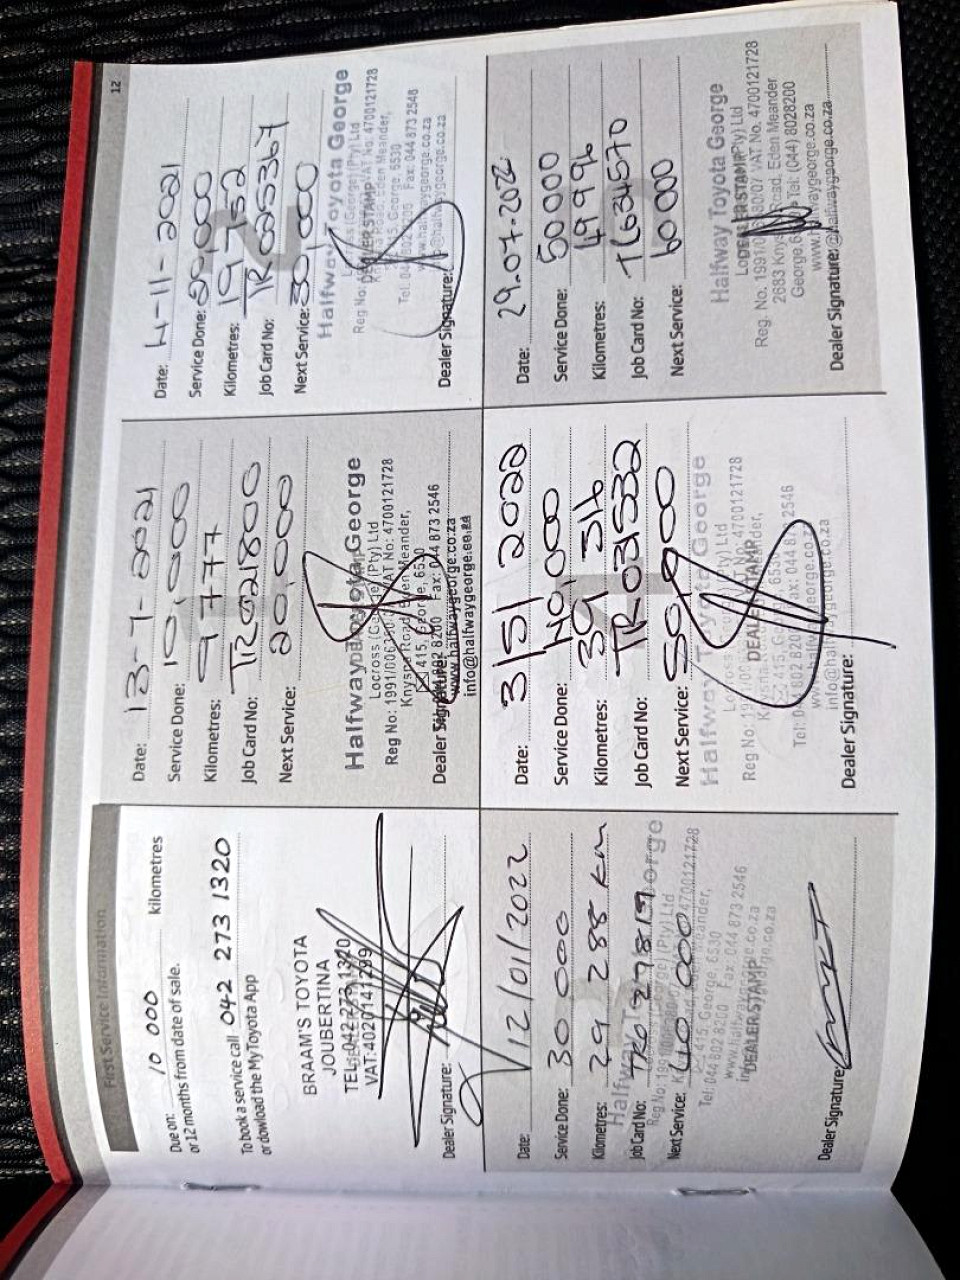 First Service Information
12
Due on: 10 000 kilometres
or 12 months from date of sale.
To book a service call 042 273 1320
or dowload the MyToyota App
BRAAM'S TOYOTA
JOUBERTINA
TEL: 042 273 1320
VAT: 4020141299
Dealer Signature:
Date: 13-7-2021
Service Done: 10,000
Kilometres: 9777
Job Card No: TR021800
Next Service: 20,000
Halfway Toyota George
Locross (George) (Pty) Ltd
Reg No: 1991/006390/07 VAT No: 4700121728
Knysna Road, Eden Meander,
415, George, 6530
044 802 8200 Fax: 044 873 2546
www.halfwaygeorge.co.za
info@halfwaygeorge.co.za
Dealer Signature:
Date: 4-11-2021
Service Done: 20,000
Kilometres: 19752
Job Card No: TR025367
Next Service: 30,000
Halfway Toyota George
Locross (George) (Pty) Ltd
DEALER STAMP
VAT No: 4700121728
Knysna Road, Eden Meander,
415, George, 6530
Tel: 044 802 8200 Fax: 044 873 2546
www.halfwaygeorge.co.za
info@halfwaygeorge.co.za
Dealer Signature:
Date: 12/01/2022
Service Done: 30 000
Kilometres: 29 288 km
Job Card No:
Next Service: 40 000
Halfway Toyota George
(George) (Pty) Ltd
4700121728
415, George, 6530
Tel: 044 802 8200 Fax: 044 873 2546
DEALER STAMP
Dealer Signature:
Date: 3/5/2022
Service Done: 40,000
Kilometres: 39 316
Job Card No: TR031532
Next Service: 50,000
Halfway Toyota George
(Pty) Ltd
Reg No: VAT No: 4700121728
DEALER STAMP
415, George, 6530
Tel: 044 802 8200 Fax: 044 873 2546
www.halfwaygeorge.co.za
info@halfwaygeorge.co.za
Dealer Signature:
Date: 29.07.2022
Service Done: 50 000
Kilometres: 49996
Job Card No: T634570
Next Service: 60 000
Halfway Toyota George
DEALER STAMP (Pty) Ltd
Reg. No. VAT No. 4700121728
2683 Knysna Road, Eden Meander
George, Tel: (044) 8028200
www.halfwaygeorge.co.za
@halfwaygeorge.co.za
Dealer Signature: